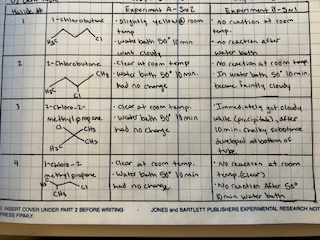 Halide #
Experiment A - SN2
Experiment B - SN1
1
1-chlorobutane
H3C
Cl
• slightly yellow @ room
temp
• water bath 50° 10 min
went cloudy
• no reaction at room
temp.
• no reaction after
water bath
2
2-Chlorobutane
H3C
CH3
Cl
• Clear at room temp
• water bath 50° 10 min.
had no change
• No reaction at room temp.
• In water bath 50° 10 min.
became faintly cloudy
3
2-chloro-2-
methylpropane
Cl
CH3
H3C
CH3
• clear at room temp.
• water bath 50° 10 min
had no change
• Immediately got cloudy
white (precipitate), after
10 min. chalky substance
developed at bottom of
tube.
4
1-chloro-2-
methylpropane
H3C
Cl
CH3
• Clear at room temp.
• Water bath 50° 10 min
had no change
• No reaction at room
temp (clear)
• No reaction After 50°
10 min water bath
E, INSERT COVER UNDER PART 2 BEFORE WRITING
PRESS FIRMLY.
JONES and BARTLETT PUBLISHERS EXPERIMENTAL RESEARCH NOT